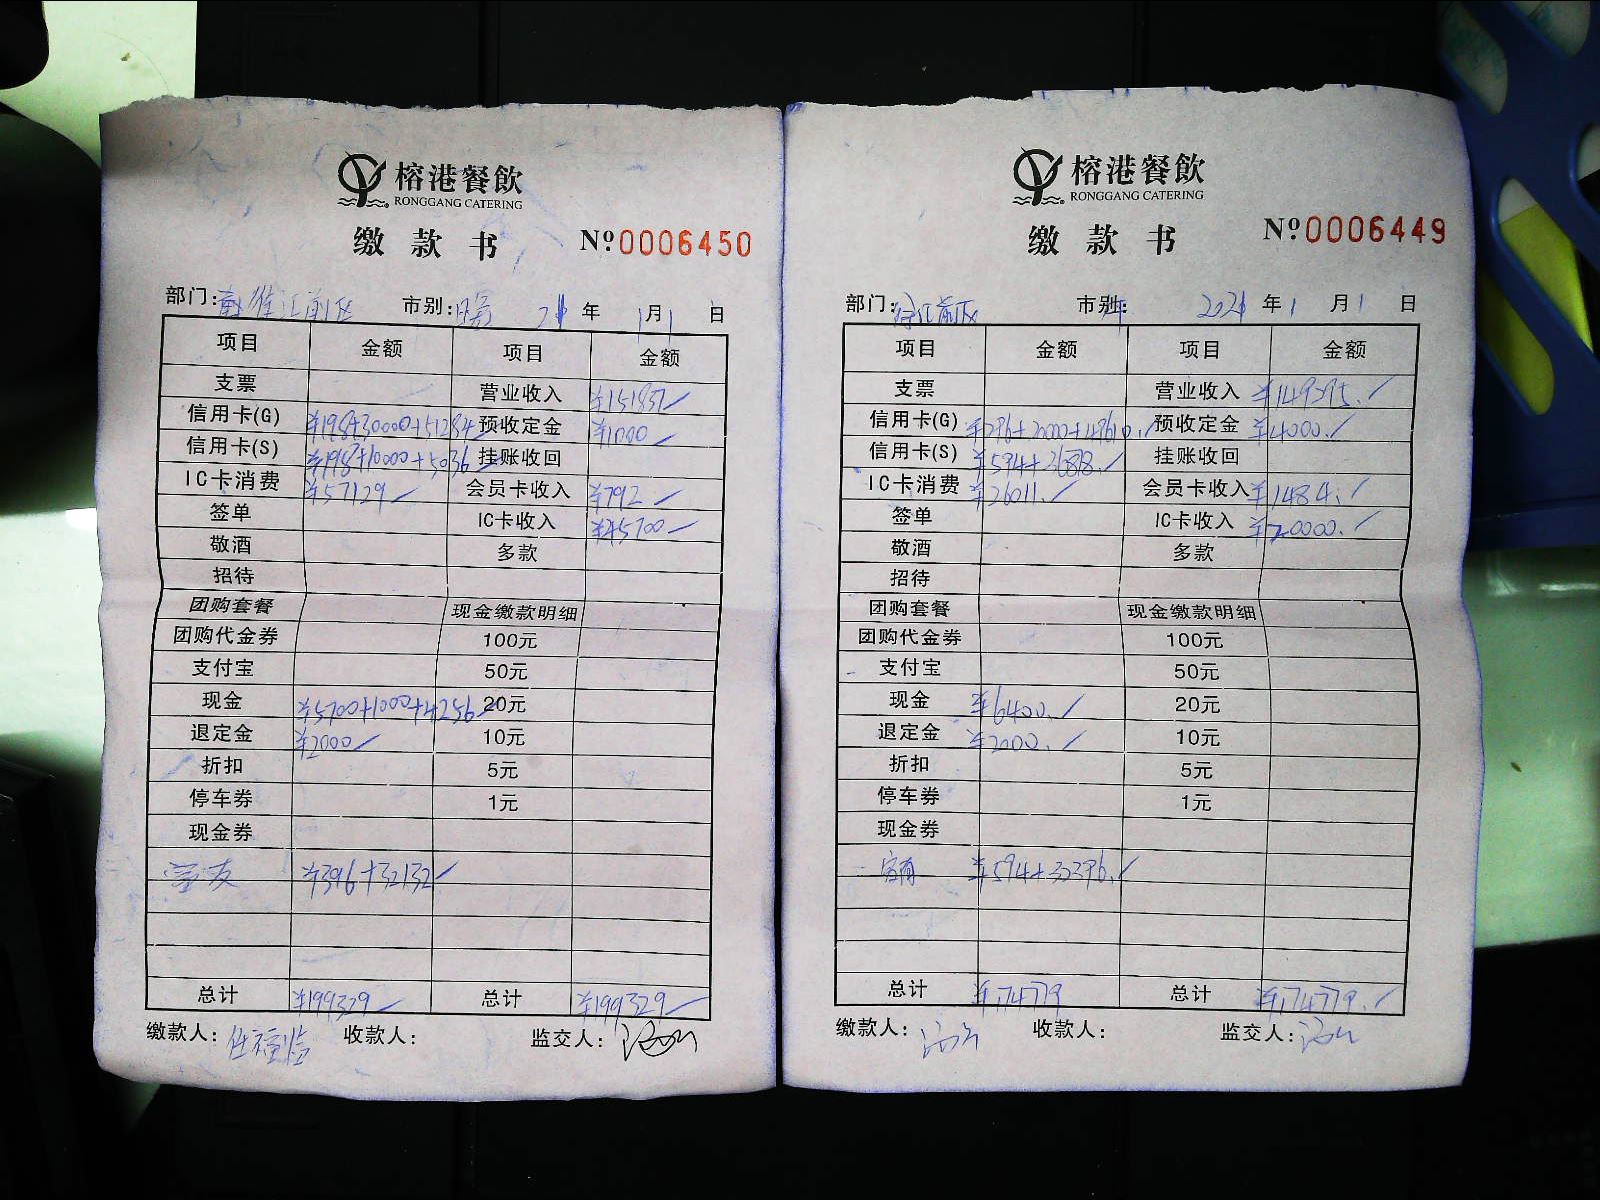 榕港餐飲
RONGGANG CATERING
缴款书 Nº0006450
部门: 市别: 21年1月1日
项目 金额 项目 金额
支票 营业收入 ¥151837
信用卡(G) ¥198+30000+51284 预收定金 ¥1000
信用卡(S) ¥198+10000+5036 挂账收回
IC卡消费 ¥57129 会员卡收入 ¥792
签单 IC卡收入 ¥45700
敬酒 多款
招待
团购套餐 现金缴款明细
团购代金券 100元
支付宝 50元
现金 ¥5700+1000+4256 20元
退定金 ¥2000 10元
折扣 5元
停车券 1元
现金券
¥396+32132
总计 ¥199329 总计 ¥199329
缴款人: 收款人: 监交人:
榕港餐飲
RONGGANG CATERING
缴款书 Nº0006449
部门: 市别: 2021年1月1日
项目 金额 项目 金额
支票 营业收入 ¥149295.
信用卡(G) ¥296+30000+49610. 预收定金 ¥4000.
信用卡(S) ¥594+26878. 挂账收回
IC卡消费 ¥26011. 会员卡收入 ¥1484.
签单 IC卡收入 ¥20000.
敬酒 多款
招待
团购套餐 现金缴款明细
团购代金券 100元
支付宝 50元
现金 ¥6400. 20元
退定金 ¥2000. 10元
折扣 5元
停车券 1元
现金券
¥594+32396.
总计 ¥174779 总计 ¥174779.
缴款人: 收款人: 监交人: